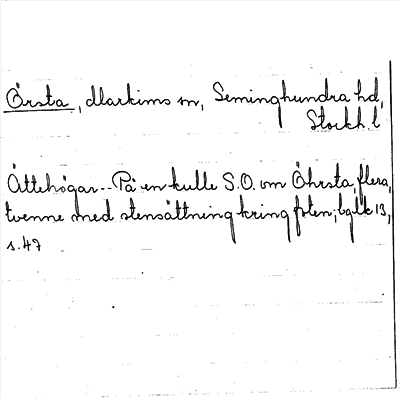 Örsta, Markims sn, Seminghundra hd,
Stockh. l
Ättehögar.-- På en kulle S.O. om Öhrsta, flera,
tvenne med stensättning kring foten; 13,
s. 47